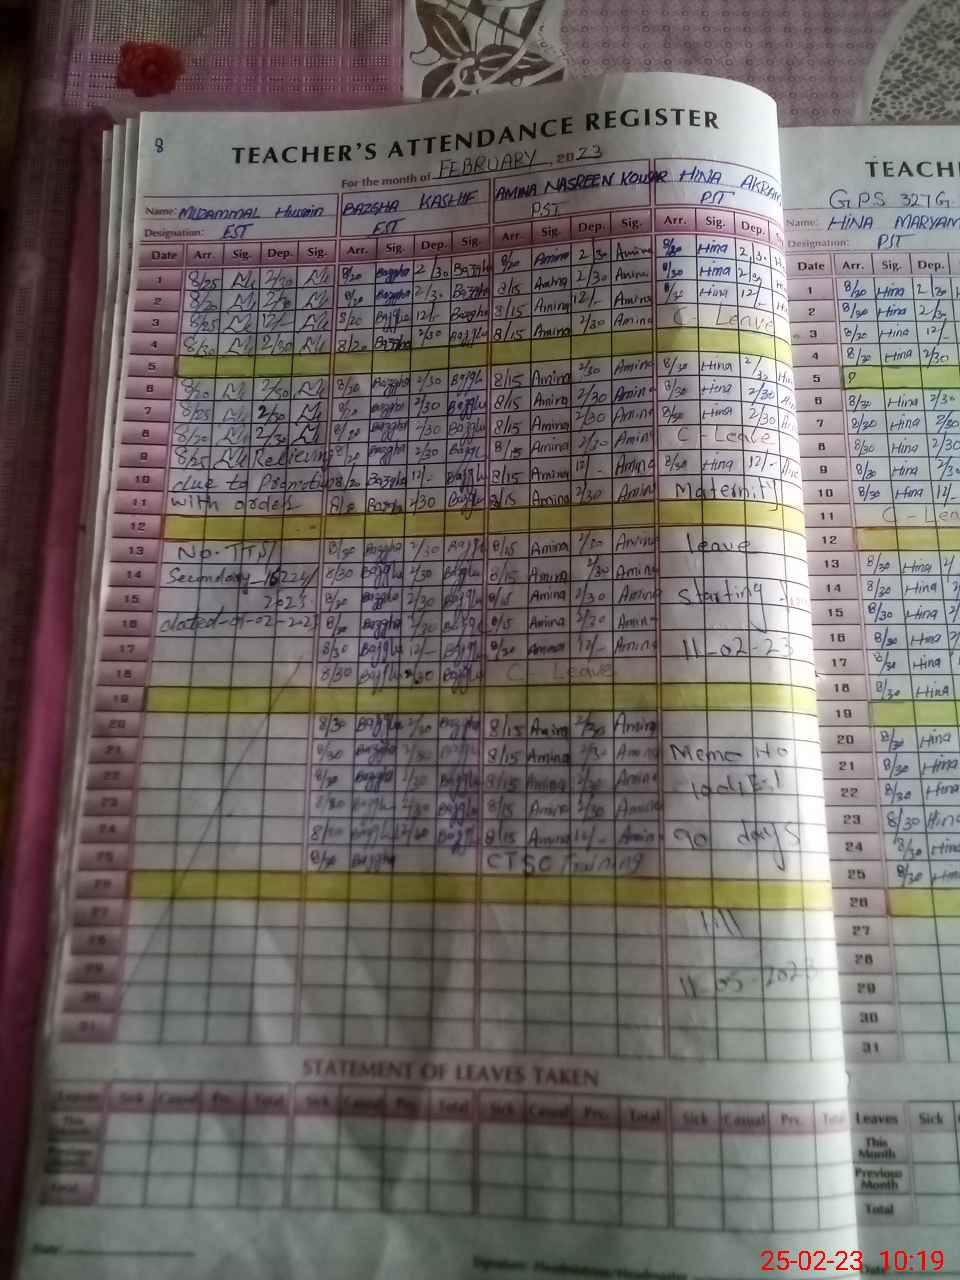 8
TEACHER'S ATTENDANCE REGISTER
For the month of FEBRUARY 2023
Name: Hussain BAZGHA KASHIF AMINA NASREEN KOUSAR HINA AKRAM
Designation: EST EST PST PST
Date Arr. Sig. Dep. Sig. Arr. Sig. Dep. Sig. Arr. Sig. Dep. Sig. Arr. Sig. Dep.
1 8/25 2/30 8/20 Bazgha 2/30 Bazgha 8/20 Amina 2/30 Amina 8/30 Hina 2/30
2 8/20 2/30 8/20 Bazgha 2/30 Bazgha 8/15 Amina 2/30 Amina 8/30 Hina 2/30
3 8/25 12/- 8/20 Bazgha 12/- Bazgha 8/15 Amina 12/- Amina 8/30 Hina 12/-
4 8/30 2/30 8/20 Bazgha 2/30 Bazgha 8/15 Amina 2/30 Amina C-Leave
5
6 8/20 2/30 8/30 Bazgha 2/30 Bazgha 8/15 Amina 2/30 Amina 8/30 Hina 2/30
7 8/25 2/30 8/20 Bazgha 2/30 Bazgha 8/15 Amina 2/30 Amina 8/30 Hina 2/30
8 8/20 2/30 8/20 Bazgha 2/30 Bazgha 8/15 Amina 2/30 Amina 8/30 Hina 2/30
9 8/25 Relieving 8/20 Bazgha 2/30 Bazgha 8/15 Amina 2/30 Amina C-Leave
10 due to Promotion 8/20 Bazgha 12/- Bazgha 8/15 Amina 12/- Amina 8/30 Hina 12/-
11 with order Bazgha 2/30 Bazgha 8/15 Amina 2/30 Amina Maternity
12
13 No. 8/30 Bazgha 2/30 Bazgha 8/15 Amina 2/30 Amina leave
14 Secondary 8/30 Bazgha 2/30 Bazgha 8/15 Amina 2/30 Amina
15 2023 8/30 Bazgha 2/30 Bazgha 8/15 Amina 2/30 Amina Starting
16 dated-01-02-2023 8/30 Bazgha 2/30 Bazgha 8/15 Amina 2/30 Amina
17 8/30 Bazgha 12/- Bazgha 8/30 Amina 12/- Amina 11-02-23
18 8/30 Bazgha 2/30 Bazgha C-Leave
19
20 8/30 Bazgha 2/30 Bazgha 8/15 Amina 2/30 Amina
21 8/30 Bazgha 2/30 Bazgha 8/15 Amina 2/30 Amina Memo No
22 8/30 Bazgha 2/30 Bazgha 8/15 Amina 2/30 Amina
23 8/30 Bazgha 2/30 Bazgha 8/15 Amina 2/30 Amina
24 8/30 Bazgha Bazgha 8/15 Amina 12/- Amina 90 days
25 8/30 Bazgha CTSC Training
26
27 till
28
29 11-05-2023
30
31
STATEMENT OF LEAVES TAKEN
Leaves Sick Casual Prv. Total Sick Casual Prv. Total Sick Casual Prv. Total Sick Casual Prv. Total
This Month
Previous Month
Total
Date:
Signature: Headmistress/Headmaster
TEACH
GPS 327 G.
Name: HINA MARYAM
Designation: PST
Date Arr. Sig. Dep.
1 8/30 Hina 2/30
2 8/30 Hina 2/30
3 8/30 Hina 12/-
4 8/30 Hina 2/30
5
6 8/30 Hina 2/30
7 8/30 Hina 2/30
8 8/30 Hina 2/30
9 8/30 Hina 2/30
10 8/30 Hina 12/-
11 C-Lea
12
13 8/30 Hina 2/
14 8/30 Hina 2/
15 8/30 Hina 2/
16 8/30 Hina
17 8/30 Hina
18 8/30 Hina
19
20 8/30 Hina
21 8/30 Hina
22 8/30 Hina
23 8/30 Hina
24 8/30 Hina
25 8/30 Hina
26
27
28
29
30
31
Leaves Sick
This Month
Previous Month
Total
25-02-23 10:19